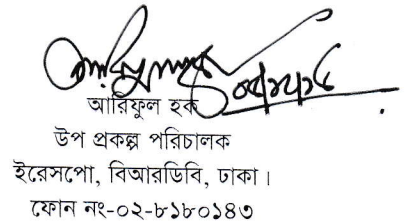 আরিফুল হক
উপ প্রকল্প পরিচালক
ইরেসপো, বিআরডিবি, ঢাকা।
ফোন নং-০২-৮১৮০১৪৩